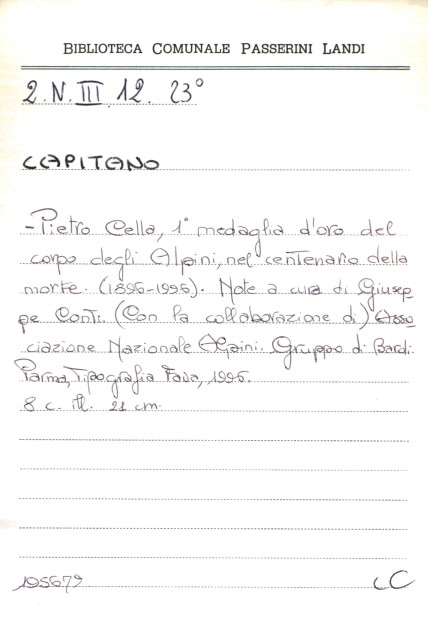 BIBLIOTECA COMUNALE PASSERINI LANDI
2. N. III 12. 23°
CAPITANO
- Pietro Cella, 1° medaglia d'oro del
corpo degli Alpini, nel centenario della
morte. (1896-1996). Note a cura di Giusep
pe Conti. (Con la collaborazione di) Asso
ciazione Nazionale Alpini. Gruppo di Bardi.
Parma, Tipografia Fava, 1996.
8 c. ill. 21 cm.
195679 CC